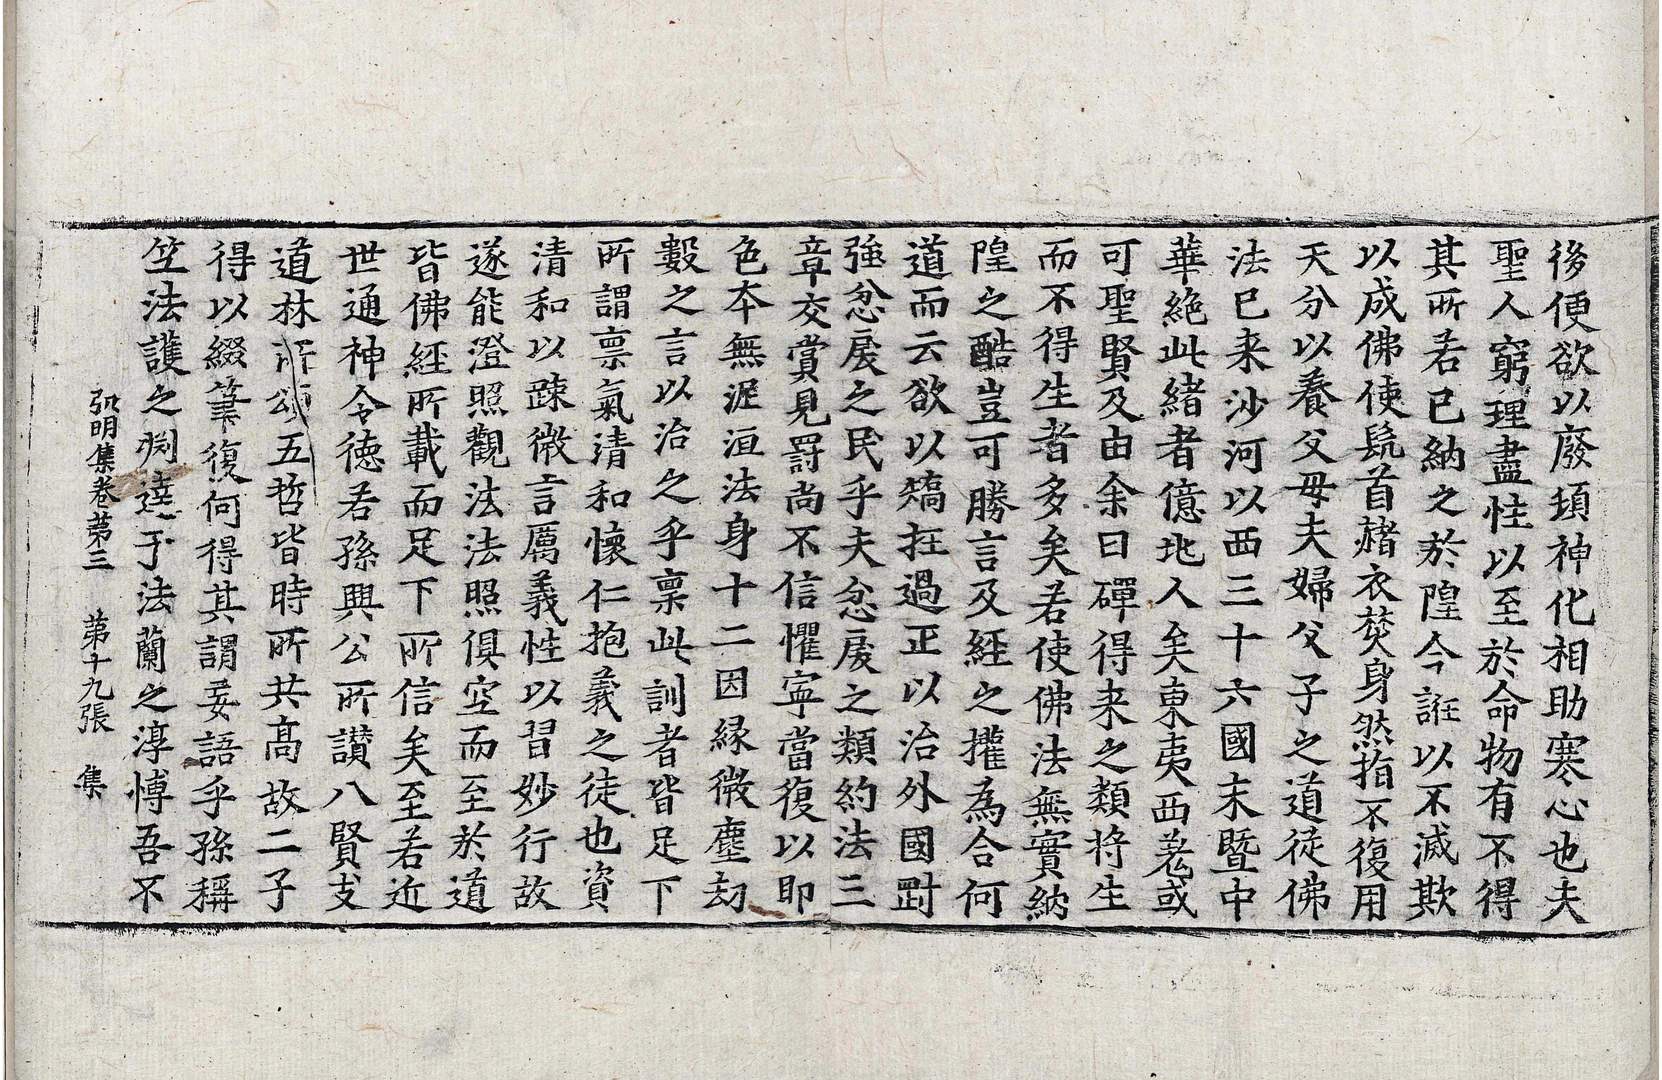 後便欲以廢頊神化相助寒心也夫
聖人窮理盡性以至於命物有不得
其所若已納之於隍今誑以不滅欺
以成佛使髡首赭衣焚身然指不復用
天分以養父母夫婦父子之道從佛
法已来沙河以西三十六國末暨中
華絶此緒者億兆人矣東夷西羌或
可聖賢及由余日磾得来之類将生
而不得生者多矣若使佛法無實納
隍之酷豈可勝言及經之攉為合何
道而云欲以矯抂過正以治外國剛
強忿戾之民乎夫忿戾之類約法三
章交賞見罰尚不信懼寜當復以即
色本無泥洹法身十二因緣微塵劫
數之言以治之乎稟此訓者皆足下
所謂稟氣清和懷仁抱義之徒也資
清和以踈微言厲義性以習妙行故
遂能澄照觀法法照俱空而至於道
皆佛經所載而足下所信矣至若近
世通神令德若孫興公所讃八賢支
道林所頌五哲皆時所共髙故二子
得以綴筆復何得其謂妄語乎孫稱
竺法護之渕達于法蘭之淳博吾不
弘明集卷第三 第十九張 集